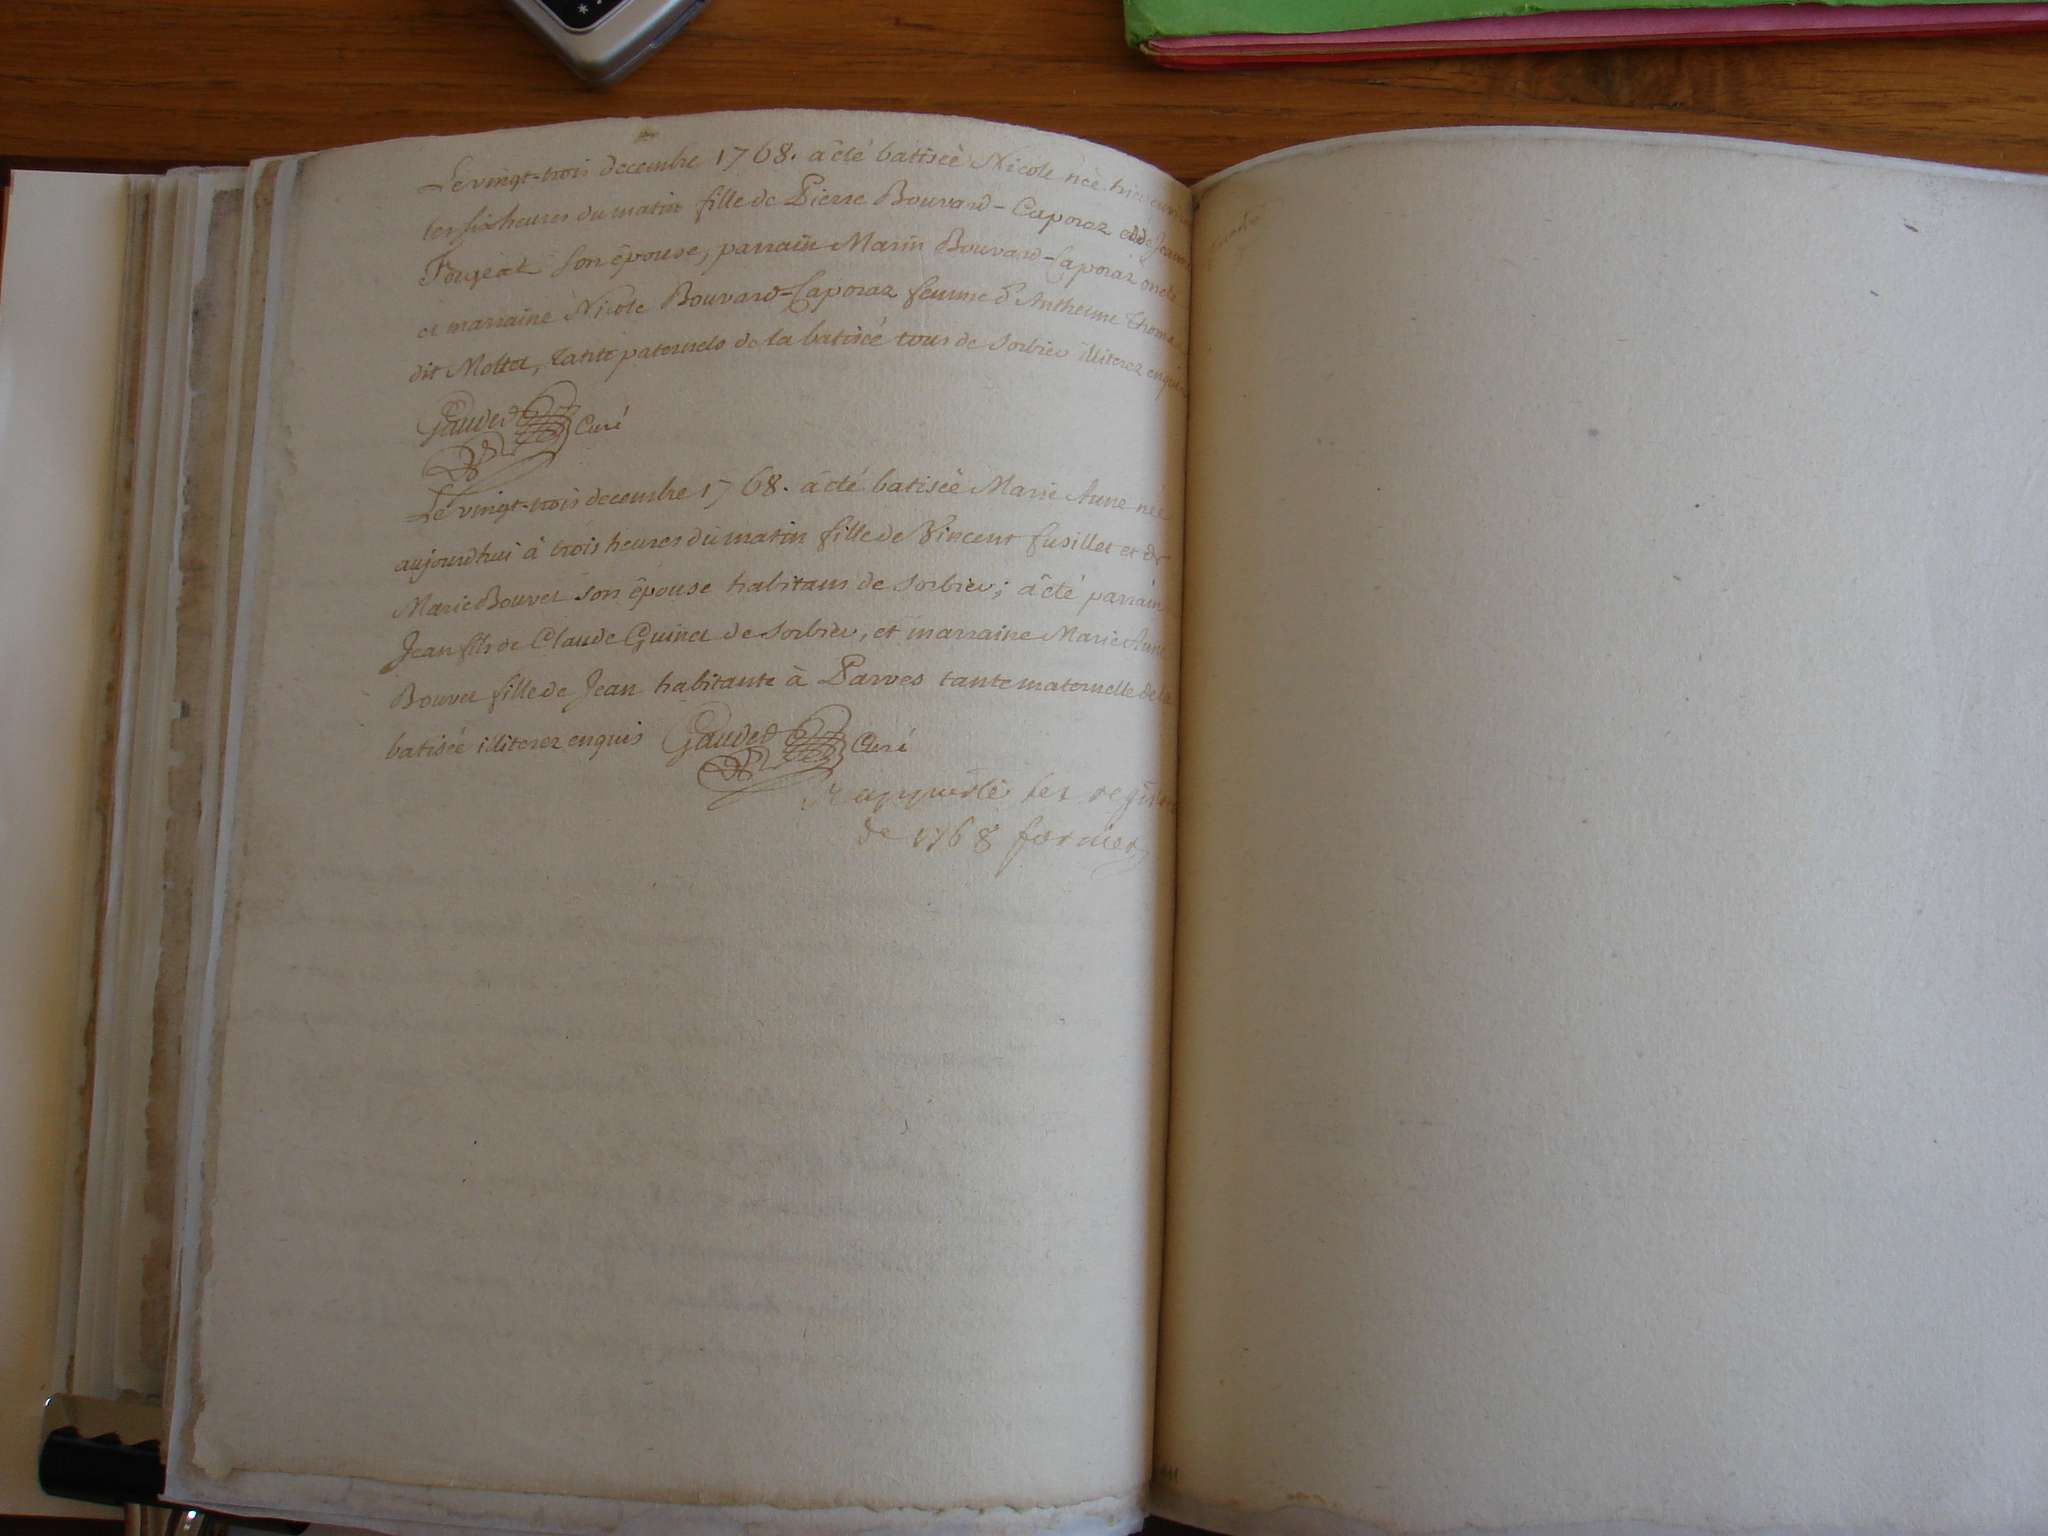 Le vingt-trois decembre 1768. a êté batisée Nicole née hier environ
les six heures du matin fille de Pierre Bouvard-Caporaz et de Jeanne
Forgeat son épouse, parrain Marin Bouvard-Caporaz oncle
et marraine Nicole Bouvard-Caporaz femme d'Antheme Thomas
dit Mollet, tante paternels de la batisée tous de Sorbieu illiterez enquis
Gaudet Curé
Le vingt-trois decembre 1768. a êté batisée Marie Anne née
aujourdhui à trois heures du matin fille de Vincent fusillet et de
Marie Bouvet son épouse habitans de Sorbieu; a êté parrain
Jean fils de Claude Guinet de Sorbieu, et marraine Marie Anne
Bouvet fille de Jean habitante à Parves tante maternelle de la
batisée illiterez enquis Gaudet Curé
R apporté les registres
de 1768 fornier